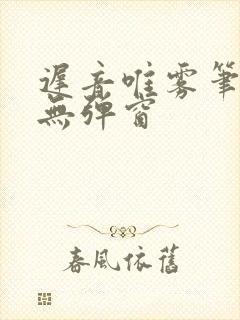 遲音唯雾筆
無弹窗
春風依舊